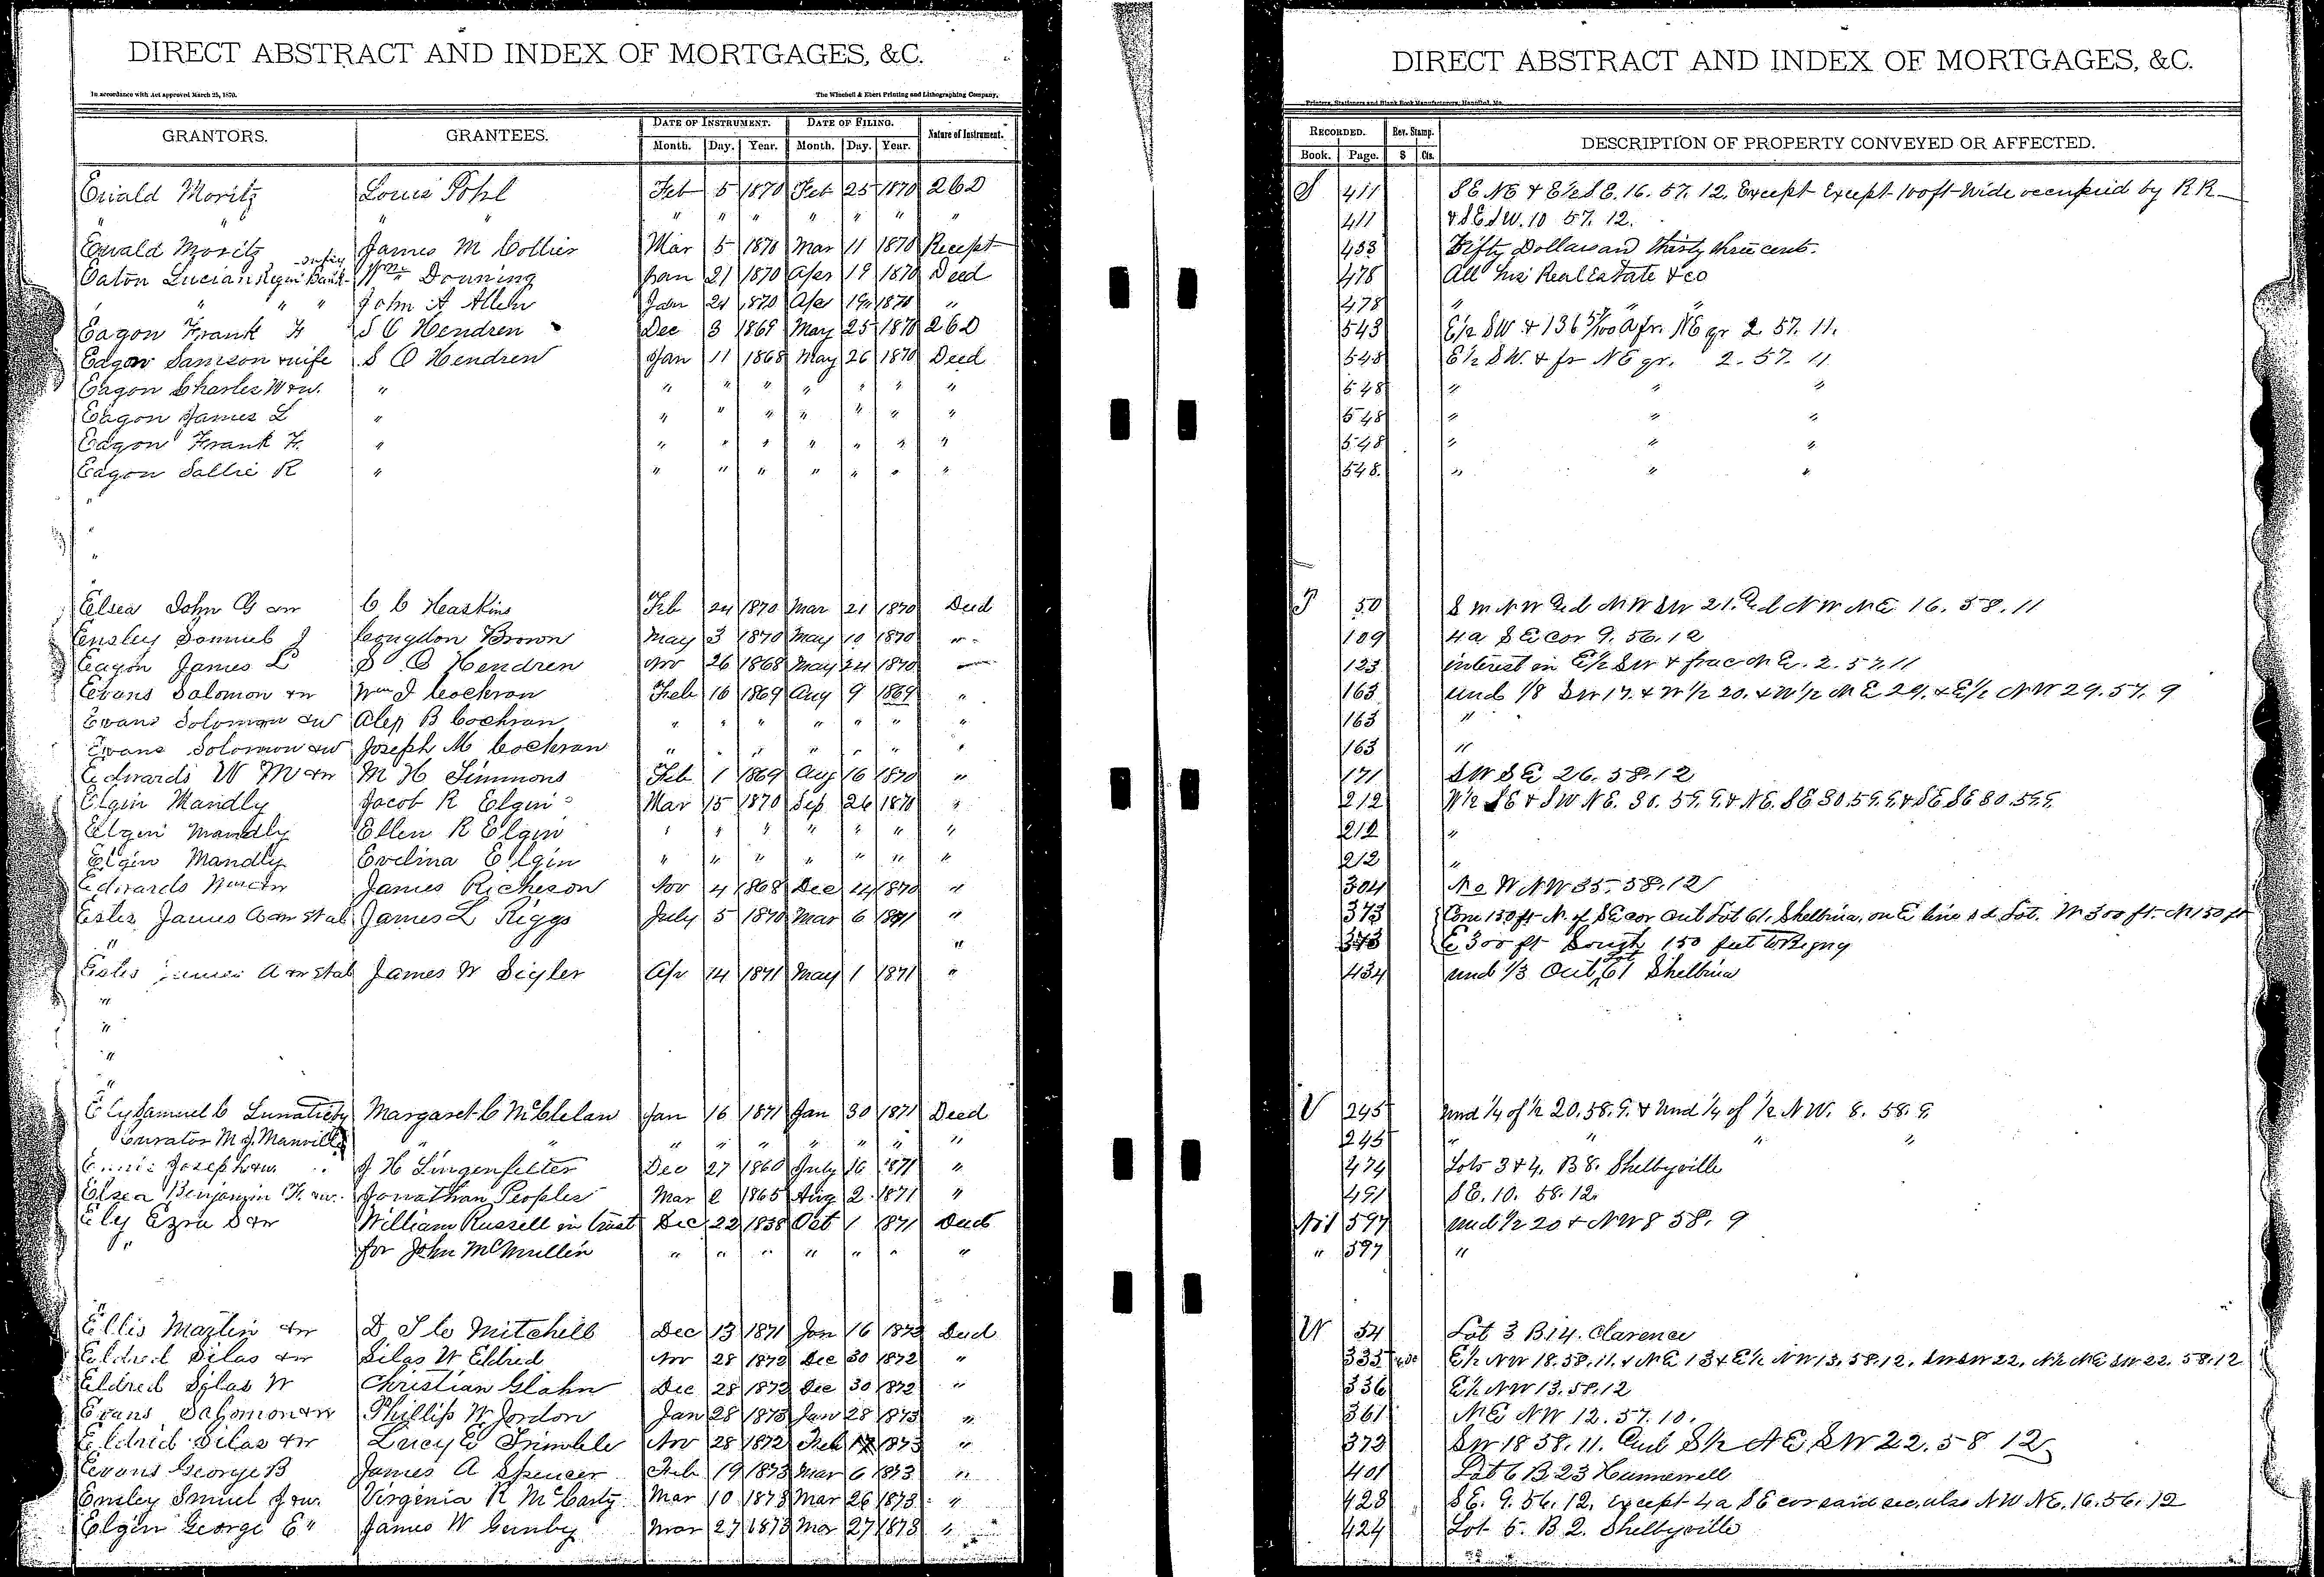 DIRECT ABSTRACT AND INDEX OF MORTGAGES, &C.
In accordance with Act approved March 25, 1870. The Winchell & Ebert Printing and Lithographing Company,
GRANTORS. GRANTEES. DATE OF INSTRUMENT. DATE OF FILING. Nature of Instrument.
Month. Day. Year. Month. Day. Year.
Ewald Moritz Louis Pohl Feb 5 1870 Feb 25 1870 26D
" " " " " " " " " " "
Ewald Moritz James M Collier Mar 5 1870 Mar 11 1870 Receipt
Eaton Lucian Regr in Bank Wm Downing Jan 21 1870 Apr 19 1870 Deed
" " " " John A Allen Jan 21 1870 Apr 19 1870 "
Eagon Frank F S O Hendren Dec 3 1869 May 25 1870 26D
Eagon Samson & wife S O Hendren Jan 11 1868 May 26 1870 Deed
Eagon Charles W & w. " " " " " " " "
Eagon James L " " " " " " " "
Eagon Frank F. " " " " " " " "
Eagon Sallie R " " " " " " " "
"
"
"
"
Elsea John G & w C C Heaskins Feb 24 1870 Mar 21 1870 Deed
Ensley Samuel J Congdon Brown May 3 1870 May 10 1870 "
Eagon James L S O Hendren Nov 26 1868 May 24 1870
Evans Solomon & w Wm J Cochran Feb 16 1869 Aug 9 1869 "
Evans Solomon & w Alex B Cochran " " " " " " "
Evans Solomon & w Joseph M Cochran " " " " " " "
Edwards W M & w M H Simmons Feb 1 1869 Aug 16 1870 "
Elgin Mandly Jacob R Elgin Mar 15 1870 Sep 26 1870 "
Elgin Mandly Ellen R Elgin " " " " " " "
Elgin Mandly Evelina Elgin " " " " " " "
Edwards Wm & w James Richeson Nov 4 1868 Dec 24 1870 "
Estes James A & w et al James L Riggs July 5 1870 Mar 6 1871 "
" "
Estes James A & w et al James W Sigler Apr 14 1871 May 1 1871 "
"
"
"
"
Ely Samuel C Lunatic by Margaret C McClelan Jan 16 1871 Jan 30 1871 Deed
Curator M J Manville " " " " " " " " "
Ennis Joseph & w. J H Lingenfelter Dec 27 1860 July 16 1871 "
Elsea Benjamin F. & w. Jonathan Peoples Mar 2 1865 Aug 2 1871 "
Ely Ezra S & w William Russell in trust Dec 22 1838 Oct 1 1871 Deed
" for John McMullin " " " " " " "
"
Ellis Martin & w D T C Mitchell Dec 13 1871 Jan 16 1873 Deed
Eldred Silas & w Silas W Eldred Nov 28 1872 Dec 30 1872 "
Eldred Silas W Christian Glahn Dec 28 1872 Dec 30 1872 "
Evans Salomon & w Phillip W Jordon Jan 28 1873 Jan 28 1873 "
Eldred Silas & w Lucy E Trimble Nov 28 1872 Feb 1873 "
Evans George B James A Spencer Feb 19 1873 Mar 6 1873 "
Ensley Smuel J & w. Virginia R McCarty Mar 10 1873 Mar 26 1873 "
Elgin George E " James W Gernby Mar 27 1873 Mar 27 1873 "
DIRECT ABSTRACT AND INDEX OF MORTGAGES, &C.
Printers, Stationers and Blank Book Manufacturers, Hannibal, Mo.
RECORDED. Rev. Stamp. DESCRIPTION OF PROPERTY CONVEYED OR AFFECTED.
Book. Page. $ Cts.
S 411 SE NE & E½ SE. 16. 57. 12, Except Except 100 ft Wide occupied by R R
411 & SE SW. 10 57. 12.
453 Fifty Dollars and thirty three cents.
478 All his Real Estate &co
478 " " "
543 E½ SW & 136 57/100 A fr. NE qr 2 57. 11.
548 E½ SW. & fr NE qr. 2. 57. 11
548 " " "
548 " " "
548 " " "
548. " " "
T 50 16. 58. 11
109 4a SE cor 9. 56. 12
123 interest in E½ SW & frac N E. 2. 57. 11
163 und 1/8 SW 17. & W½ 20. & W½ NE 29. & E½ NW 29. 57. 9
163 "
163 "
171 SW SE 26. 58. 12
212 W½ SE & SW NE. 30. 59. 9. & NE. SE 30. 59. 9 & SE SE 30. 59. 9.
212 "
212 "
304 W NW 35. 58. 12
373 Com 150 ft N. of SE cor Out Lot 61. Shelbina, on E line sd Lot. W 300 ft. N 150 ft
373 E 300 ft South 150 feet to Begng
434 und 1/3 Out Lot 61 Shelbina
V 245 Und ¼ of ½ 20. 58. 9. & Und ¼ of ½ NW. 8. 58. 9
245 " " " "
474 Lots 3 & 4. B 8. Shelbyville
491 SE. 10. 58. 12.
597 und ½ 20 & NW 8 58. 9
" 597 "
W 54 Lot 3 B. 14. Clarence
335 E½ NW 18. 58. 11. & NE 13 & E½ NW 13. 58. 12. SW SW 22. N½ NE SW 22. 58. 12
336 E½ NW 13. 58. 12
361 NE NW 12. 57. 10.
373 SW 18 58. 11. And S½ NE SW 22. 58 12
401 Lot 6 B 23 Hunnewell
423 SE. 9. 56. 12, except 4a SE cor said sec, also NW NE. 16. 56. 12
424 Lot 5. B 2. Shelbyville